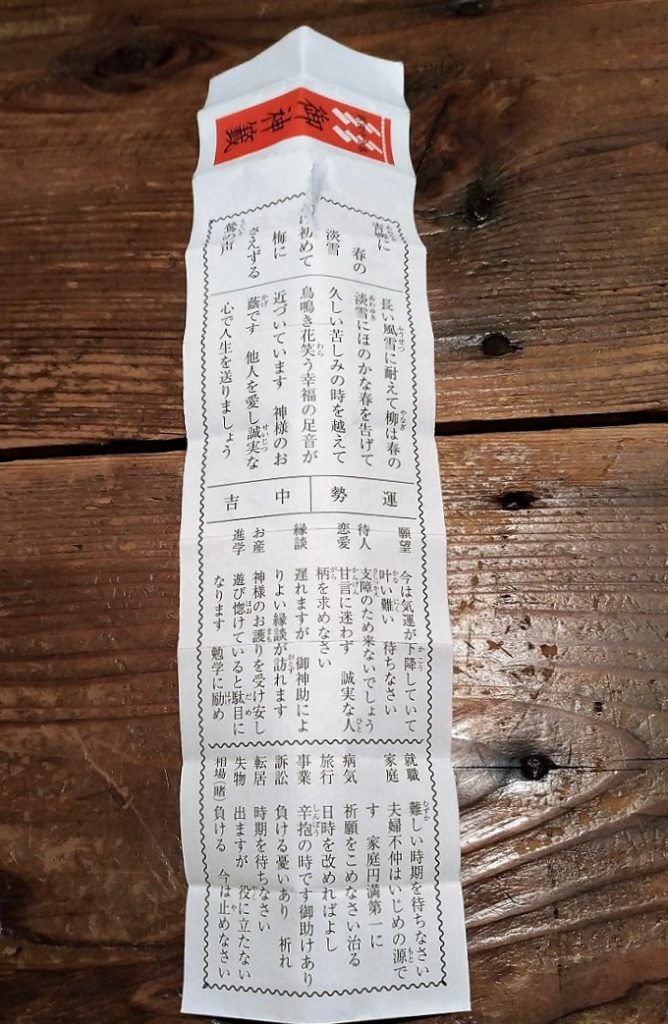 御神籤
春の
淡雪
に初めて
梅に
さえずる
鶯の声
長い風雪に耐えて柳は春の
淡雪にほのかな春を告げて
久しい苦しみの時を越えて
鳥鳴き花笑う幸福の足音が
近づいています 神様のお
蔭です 他人を愛し誠実な
心で人生を送りましょう
運勢
中吉
願望 今は気運が下降していて
叶い難い 待ちなさい
待人 支障のため来ないでしょう
恋愛 甘言に迷わず 誠実な人
柄を求めなさい
縁談 遅れますが 御神助によ
りよい縁談が訪れます
お産 神様のお護りを受け安し
進学 遊び惚けていると駄目に
なります 勉学に励め
就職 難しい時期を待ちなさい
家庭 夫婦不仲はいじめの源で
す 家庭円満第一に
病気 祈願をこめなさい治る
旅行 日時を改めればよし
事業 辛抱の時です御助けあり
訴訟 負ける憂いあり 祈れ
転居 時期を待ちなさい
失物 出ますが 役に立たない
相場(賭) 負ける 今は止めなさい